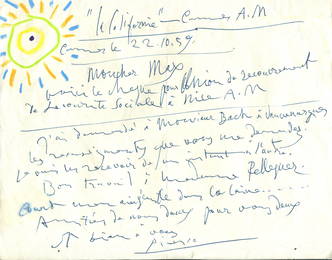 "la Californie" - Cannes A.M
Cannes le 22.10.59.
Mon cher Max
voici le cheque pour Union de recouvrement
de securite sociale à Nice A.M
J'ai demandé à Monsieur Bach à Vauvenargues
les renseignements que vous me demandez.
Je vais les recevoir d'un instant à l'autre.
Bon travail à Madame Pellequer
dans
Amitiés de nous deux pour vous deux
et bien à vous